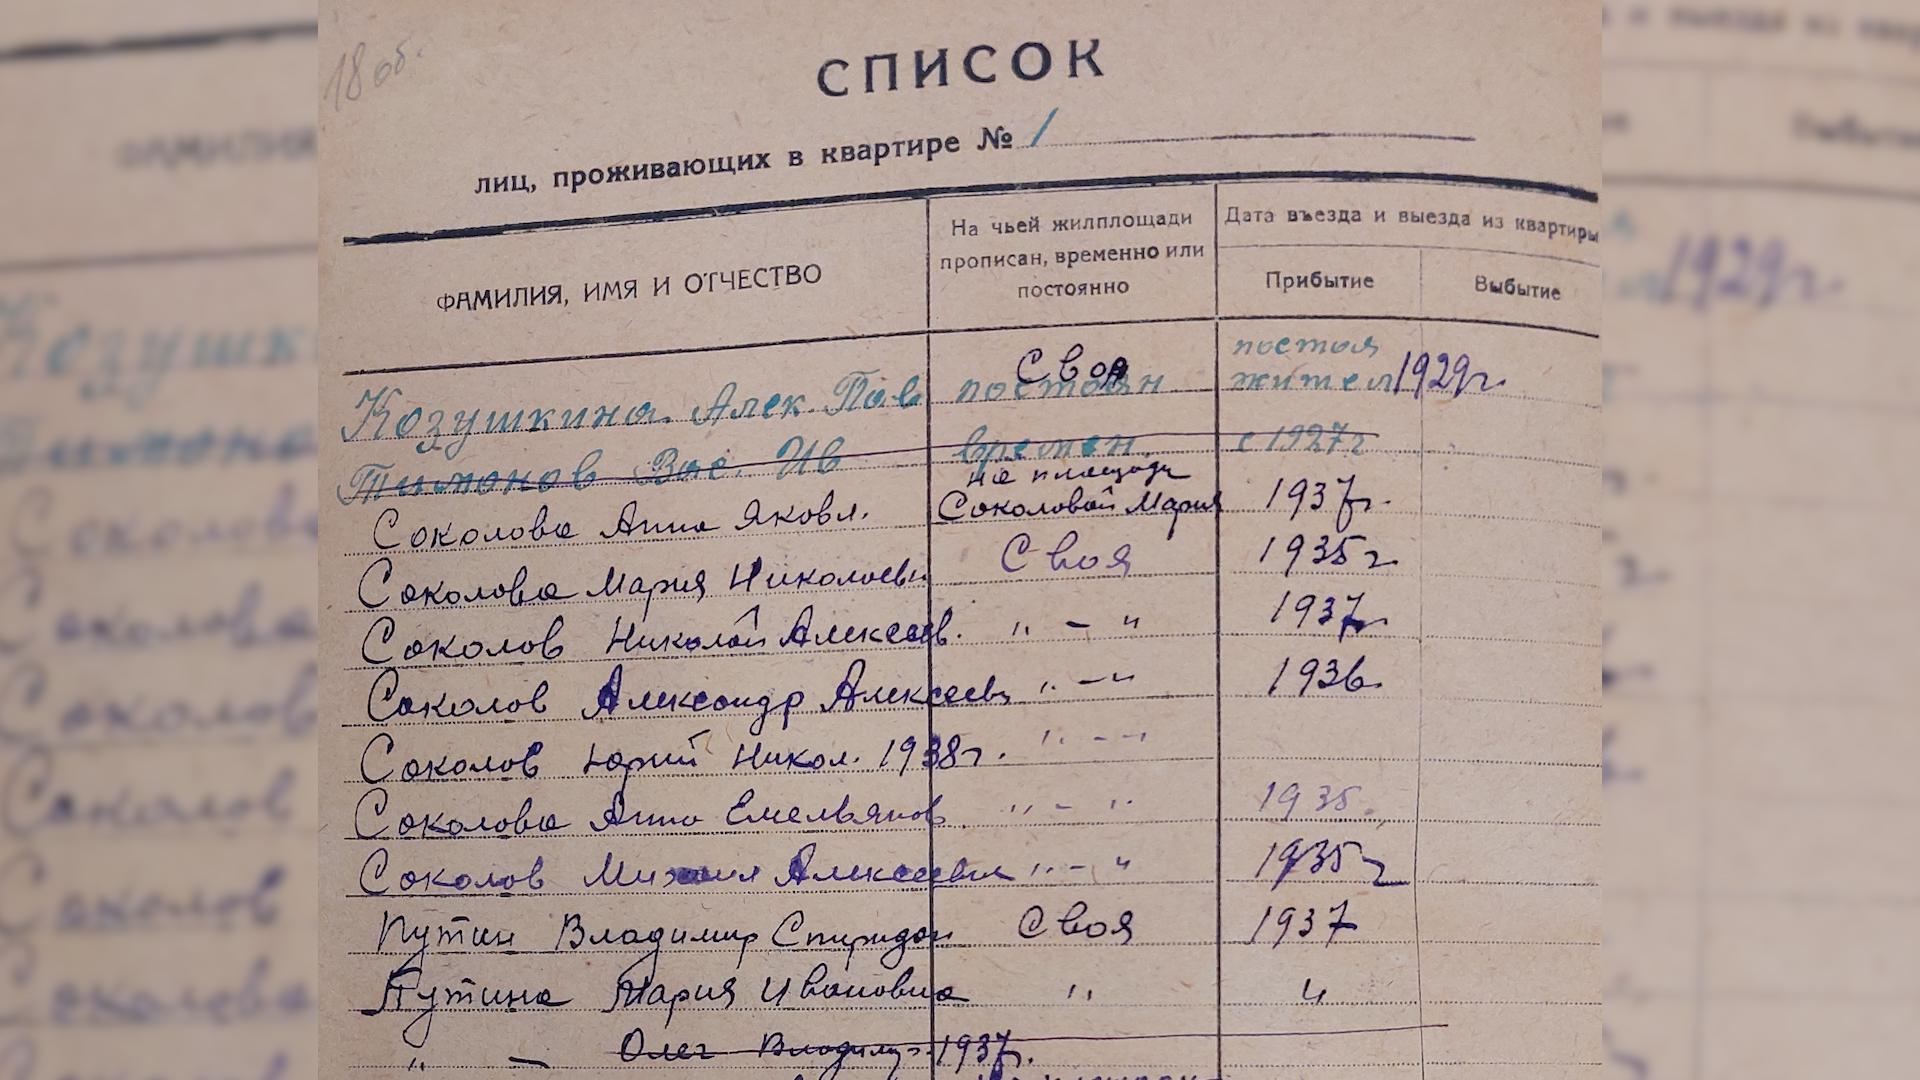 18 об.
СПИСОК
лиц, проживающих в квартире № 1
ФАМИЛИЯ, ИМЯ И ОТЧЕСТВО
На чьей жилплощади
прописан, временно или
постоянно
Дата въезда и выезда из квартиры
Прибытие
Выбытие
Козушкина Алек. Пав Своя постоян постоя жител 1929г.
Тимонов Вас. Ив времен. с 1927г
Соколова Анна Яковл. на площади Соколовой Мария 1937г.
Соколова Мария Николаевн Своя 1935г
Соколов Николай Алексеев. " - " 1937г.
Соколов Александр Алексеевч " - " 1936.
Соколов Юрий Никол. 1938г. " - "
Соколова Анна Емельянов " - " 1935.
Соколов Михаил Алексеевич " - " 1935г
Путин Владимир Спиридон Своя 1937
Путина Мария Ивановна " "
" — Олег Владимир. 1937г.